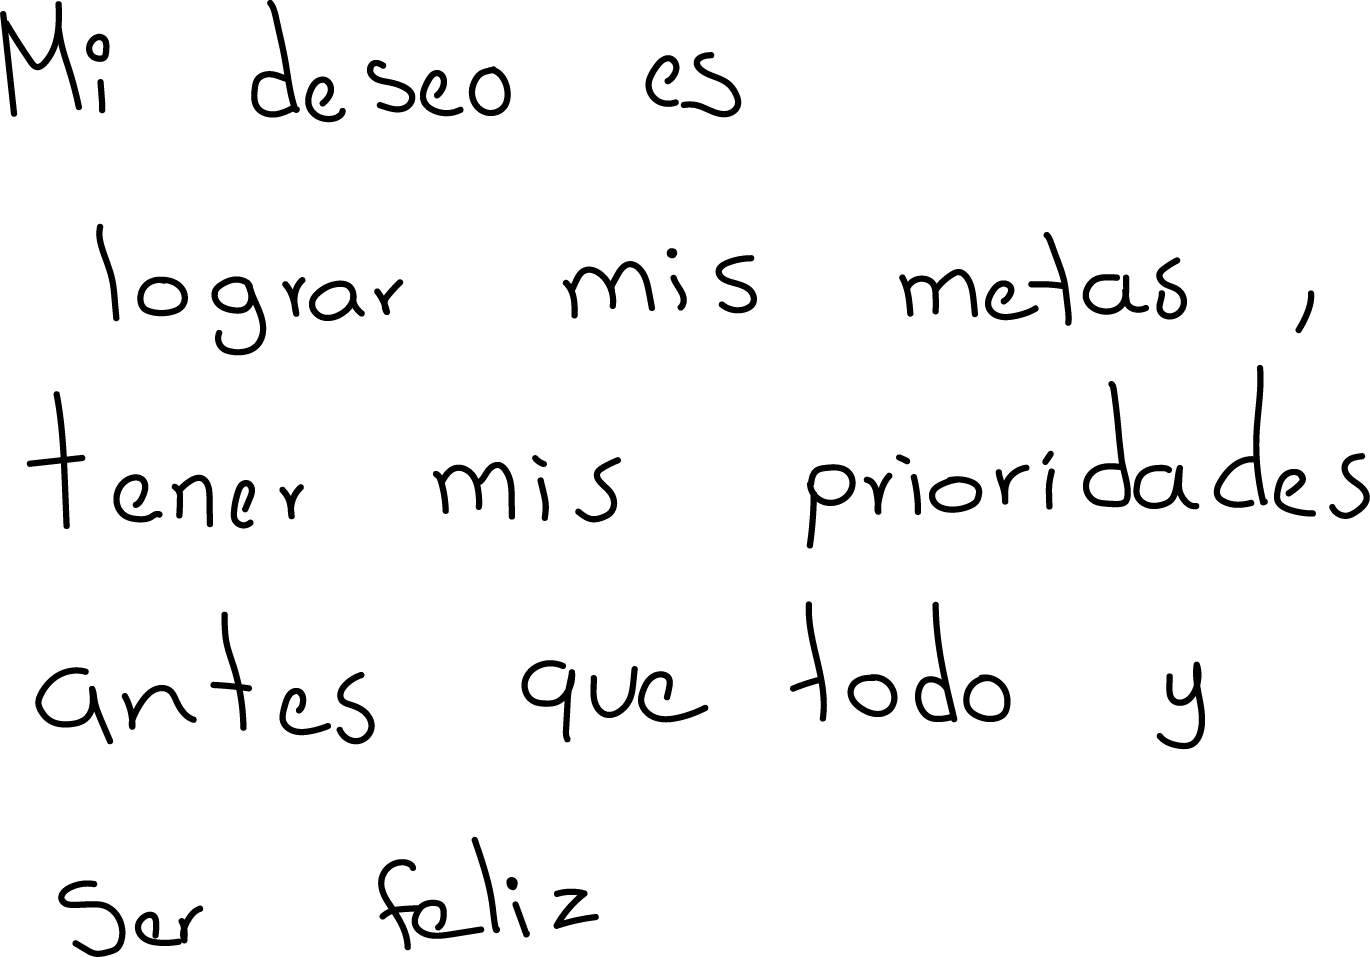 Mi deseo es
lograr mis metas ,
tener mis prioridades
antes que todo y
ser feliz